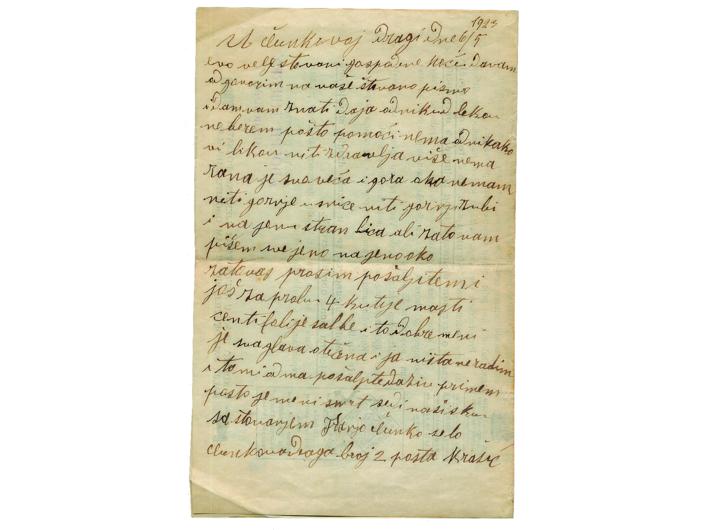 1923
U čunkovoj Dragi dne 6/5
evo velje stovani gospodne hoći davam
odgovorim na vaše stovano pismo
i dam vam znati da ja od nikud lekou
ne berem pošto pomoći nema od nikako
vi likou niti zdravlja više nema
rana je sva veća i gora oko nemam
niti gornje usnice niti gornji zubi
i na jeni stran lica ali zato vam
pišem sve jeno na jeno oko
zato vas prosim pošaljite mi
još za probu 4 kutije masti
centifolije salbe i to dobre meni
je sva glava otečena i ja ništa ne radim
i to mi odma pošaljite da živ primem
pošto je meni smrt sedi na šisku
sa stovanjem Jurjo čunko selo
čunkova draga broj 2 pošta Krašić